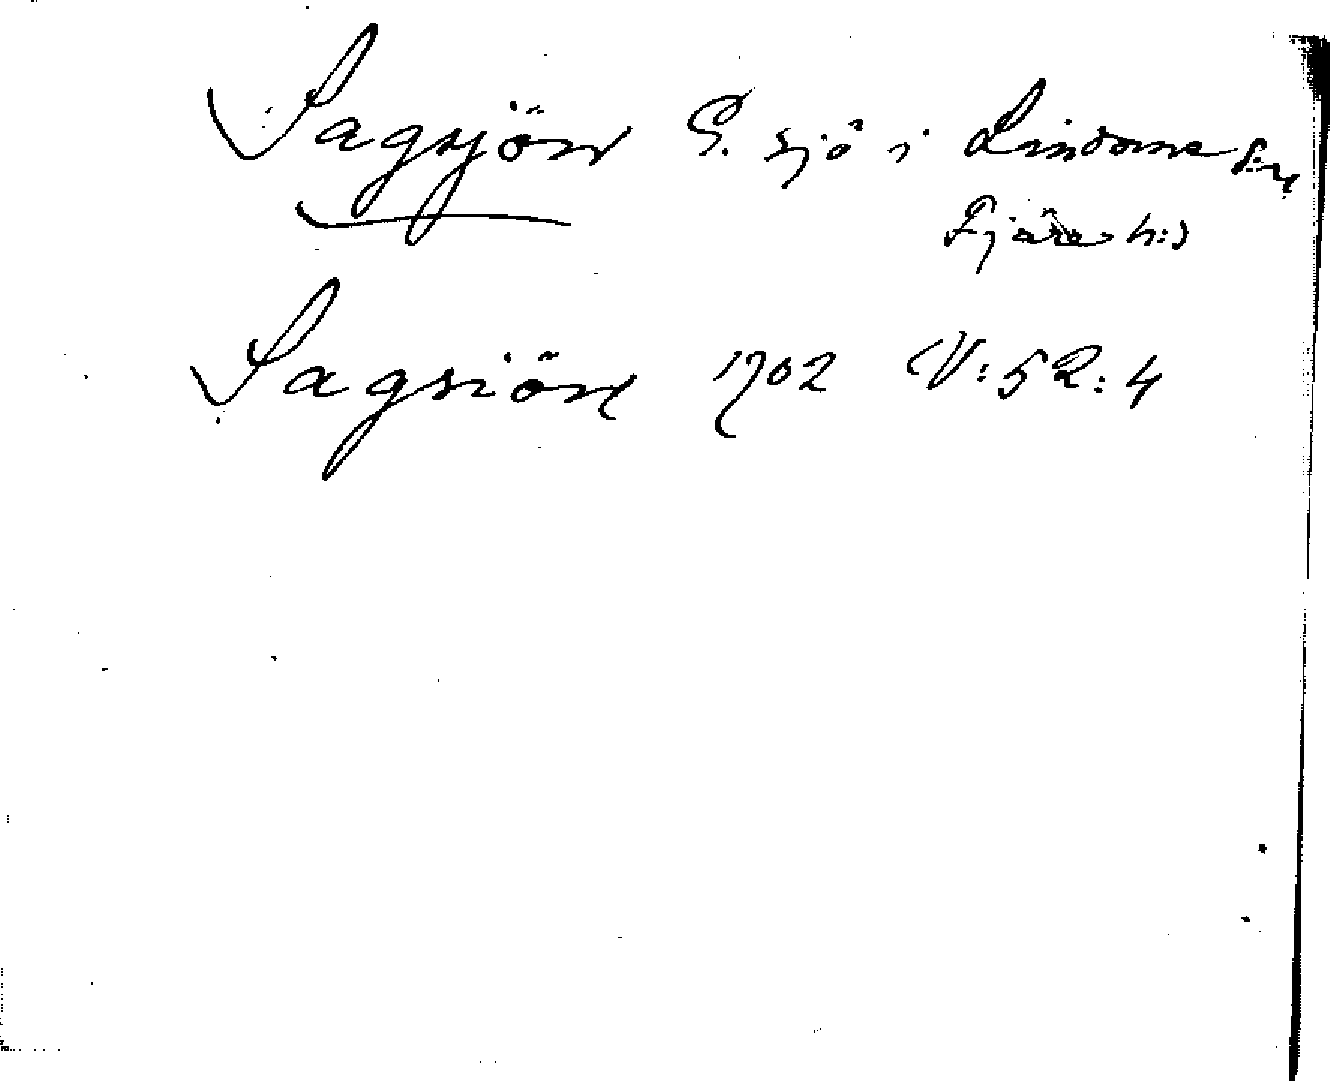 Sagsjön S. sjö i Lindome s:n
Fjäre h:d
Sagsiön 1702 V:52:4